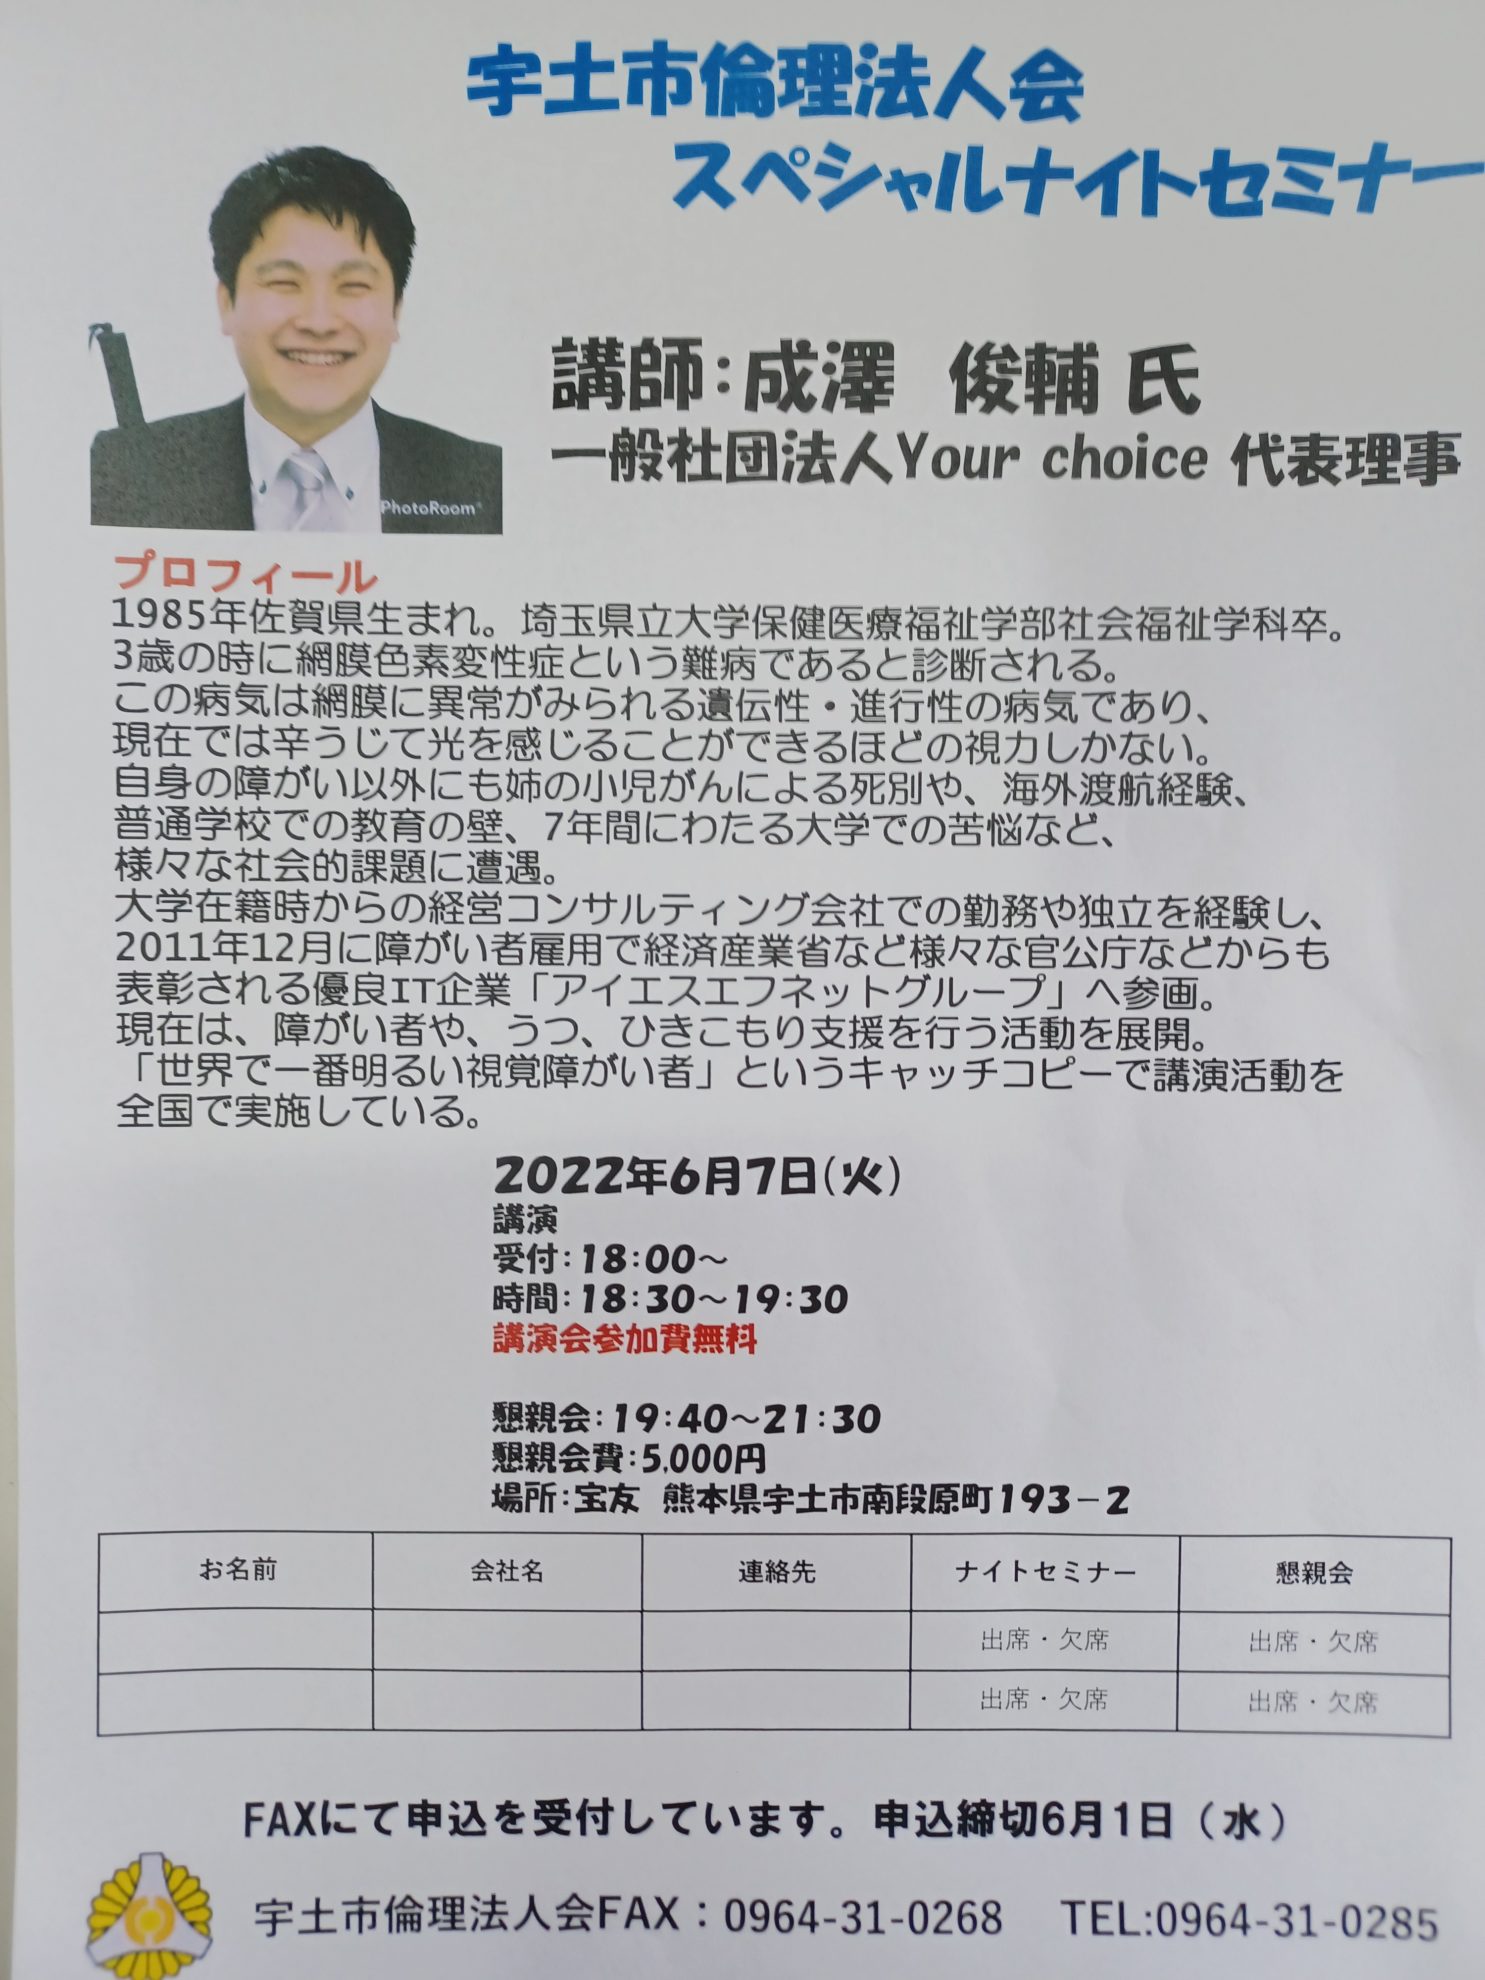 宇土市倫理法人会
スペシャルナイトセミナー
講師:成澤 俊輔 氏
一般社団法人Your choice 代表理事
PhotoRoom
プロフィール
1985年佐賀県生まれ。埼玉県立大学保健医療福祉学部社会福祉学科卒。
3歳の時に網膜色素変性症という難病であると診断される。
この病気は網膜に異常がみられる遺伝性・進行性の病気であり、
現在では辛うじて光を感じることができるほどの視力しかない。
自身の障がい以外にも姉の小児がんによる死別や、海外渡航経験、
普通学校での教育の壁、7年間にわたる大学での苦悩など、
様々な社会的課題に遭遇。
大学在籍時からの経営コンサルティング会社での勤務や独立を経験し、
2011年12月に障がい者雇用で経済産業省など様々な官公庁などからも
表彰される優良IT企業「アイエスエフネットグループ」へ参画。
現在は、障がい者や、うつ、ひきこもり支援を行う活動を展開。
「世界で一番明るい視覚障がい者」というキャッチコピーで講演活動を
全国で実施している。
2022年6月7日(火)
講演
受付:18:00～
時間:18:30～19:30
講演会参加費無料
懇親会:19:40～21:30
懇親会費:5,000円
場所:宝友 熊本県宇土市南段原町193-2
お名前 会社名 連絡先 ナイトセミナー 懇親会
出席・欠席 出席・欠席
出席・欠席 出席・欠席
FAXにて申込を受付しています。申込締切6月1日（水）
宇土市倫理法人会FAX：0964-31-0268 TEL:0964-31-0285